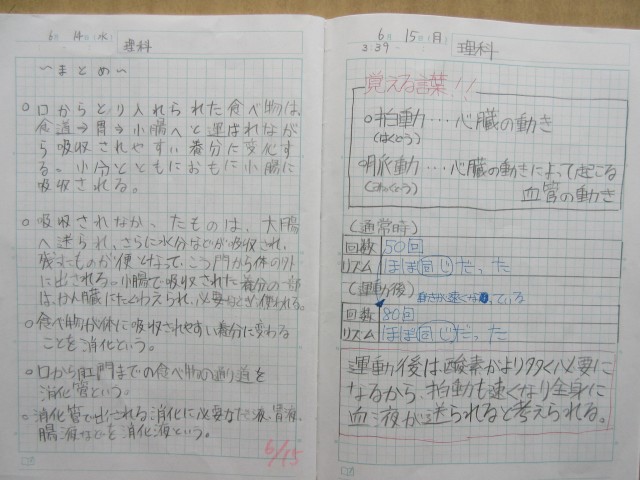 6月 14日(水)
理科
〜まとめ〜
○口からとり入れられた食べ物は、
食道→胃→小腸へと運ばれなが
ら吸収されやすい養分に変化す
る。水分とともにおもに小腸に
吸収される。
○吸収されなかったものは、大腸
へ送られ、さらに水分などが吸収され、
残ったものが便となって、こう門から体の外
に出される。小腸で吸収された養分の一部
は、かん臓にたくわえられ、必要なときに使われる。
○食べ物が体に吸収されやすい養分に変わる
ことを消化という。
○口から肛門までの食べ物の通り道を
消化管という。
○消化管で出される消化に必要なだ液、胃液、
腸液などを消化液という。
6/15
6月 15日(月)
3:39
理科
覚える言葉!!
○拍動‥‥心臓の動き
(はくどう)
○脈動‥‥心臓の動きによって起こる
血管の動き
(通常時)
回数 50回
リズム ほぼ同じだった
(運動後)
動きが速くなっている
回数 80回
リズム ほぼ同じだった
運動後は酸素がより多く必要に
なるから、拍動も速くなり全身に
血液が送られると考えられる。